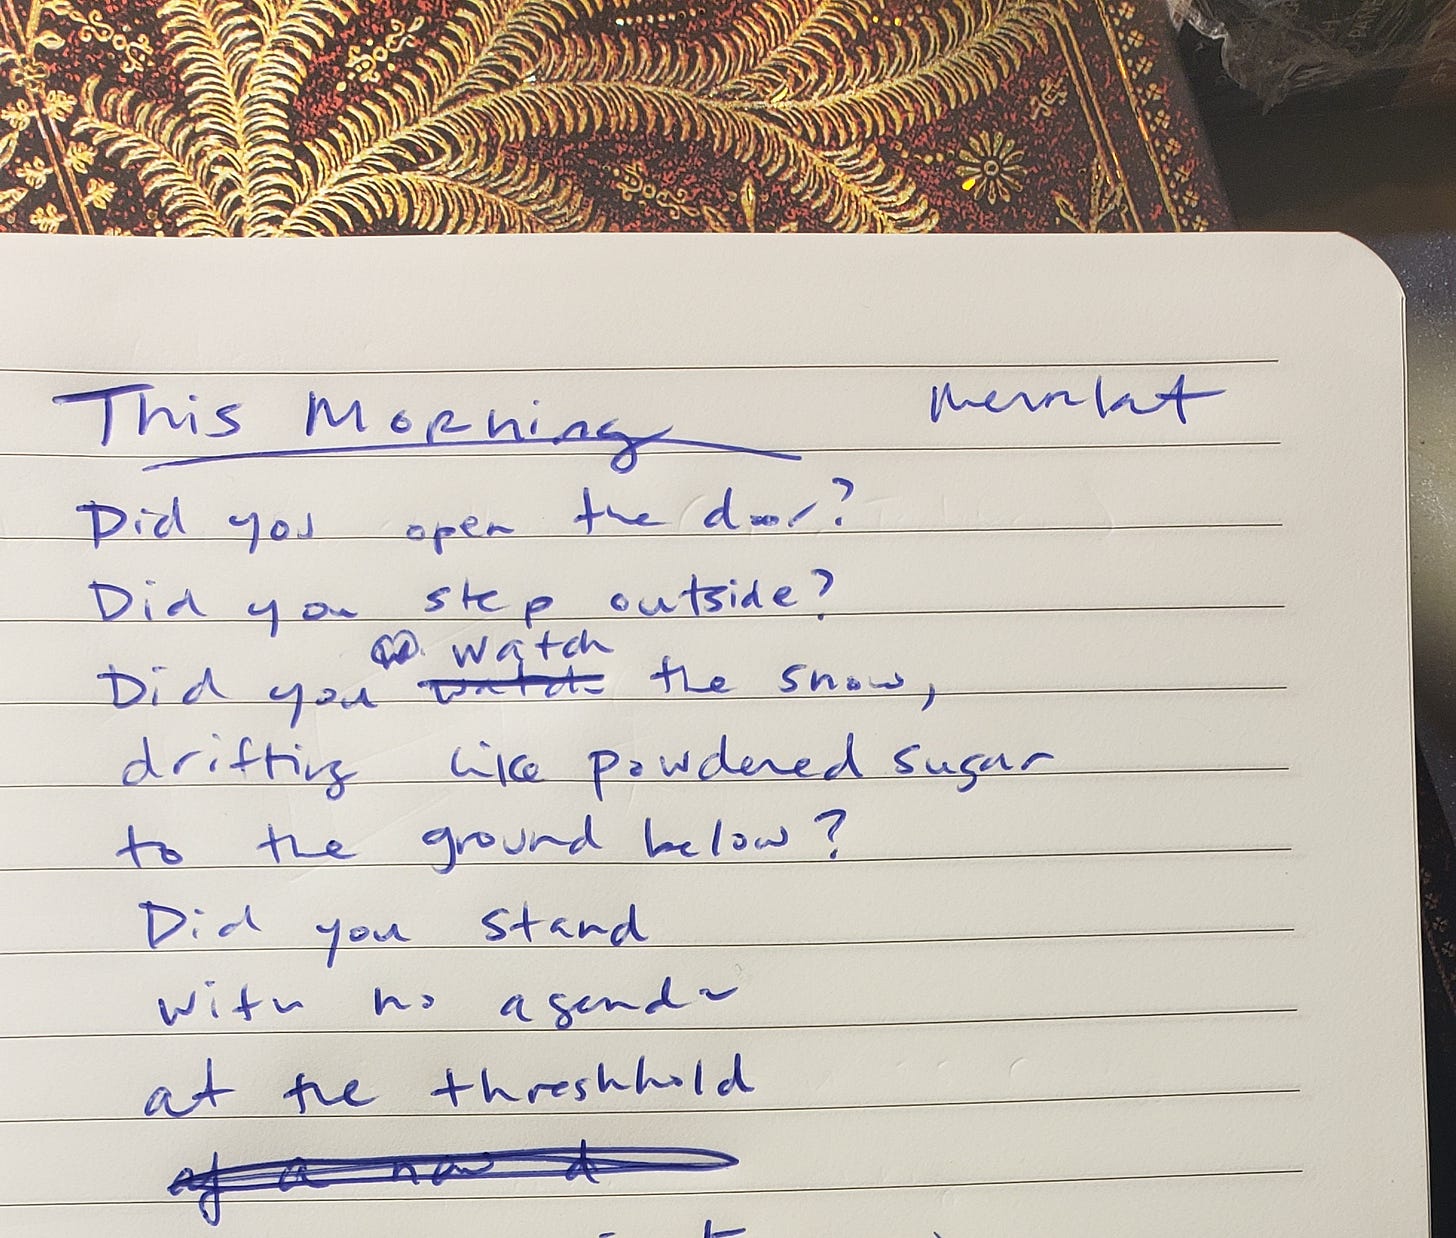 This Morning
Did you open the door?
Did you step outside?
watch
Did you watch the snow,
drifting like powdered sugar
to the ground below?
Did you stand
with no agenda
at the threshhold
of a new d